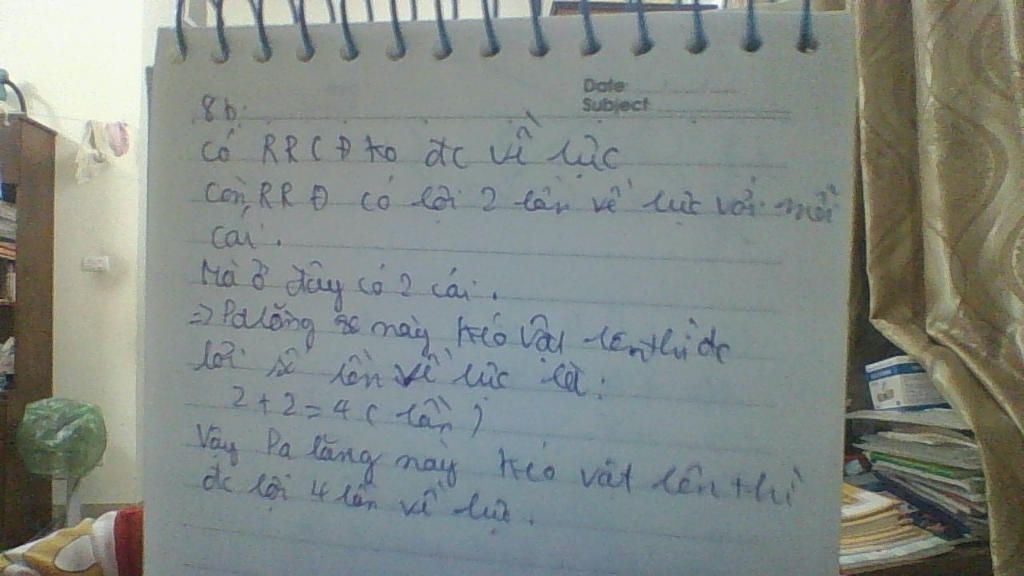 Date
Subject
8b.
Có RRCĐ ko đc về lực
Còn RRĐ có lợi 2 lần về lực với mỗi
cái.
Mà ở đây có 2 cái.
=> Palăng này kéo vật lên thì đc
lợi số lần về lực là:
2 + 2 = 4 (lần)
Vậy Pa lăng này kéo vật lên thì
đc lợi 4 lần về lực.